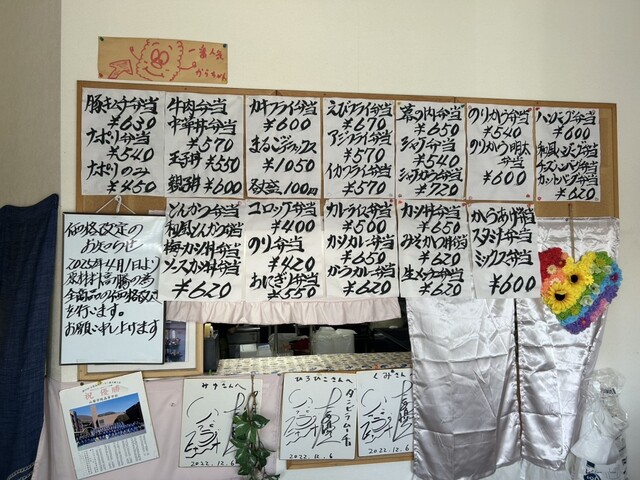 一番人気
からちゃん
豚キムチ弁当
¥630
ナポリ弁当
¥540
ナポリのみ
¥450
牛肉弁当
中華丼弁当
¥570
玉子丼 ¥550
親子丼 ¥600
カキフライ弁当
¥600
まるごデラックス
¥1050
みそ汁 100円
えびフライ弁当
¥670
アジフライ弁当
¥570
イカフライ弁当
¥570
幕の内弁当
¥650
シャケ弁当
¥540
シャケカラ弁当
¥720
のりから弁当
¥540
のりから明太
弁当
¥600
ハンバーグ弁当
¥600
和風ハンバーグ弁当
チーズハンバーグ弁当
カレーハンバーグ弁当
¥620
とんかつ弁当
和風とんかつ弁当
梅カツ丼弁当
ソースカツ丼弁当
¥620
コロッケ弁当
¥400
のり弁当
¥420
おにぎり弁当
¥550
カレーライス弁当
¥500
カツカレー弁当
¥650
カラカレー弁当
¥620
カツ丼弁当
¥650
みそかつ丼弁当
¥620
生姜焼弁当
¥620
からあげ弁当
スタミナ弁当
ミックス弁当
¥600
価格改定の
お知らせ
2025年4月1日より
原材料高騰の為
全商品の価格改定
を行います。
お願い申し上げます
祝優勝
みゆさんへ
2022.12.6
ひろひこさんへ
2022.12.6
くみさんへ
2022.12.6